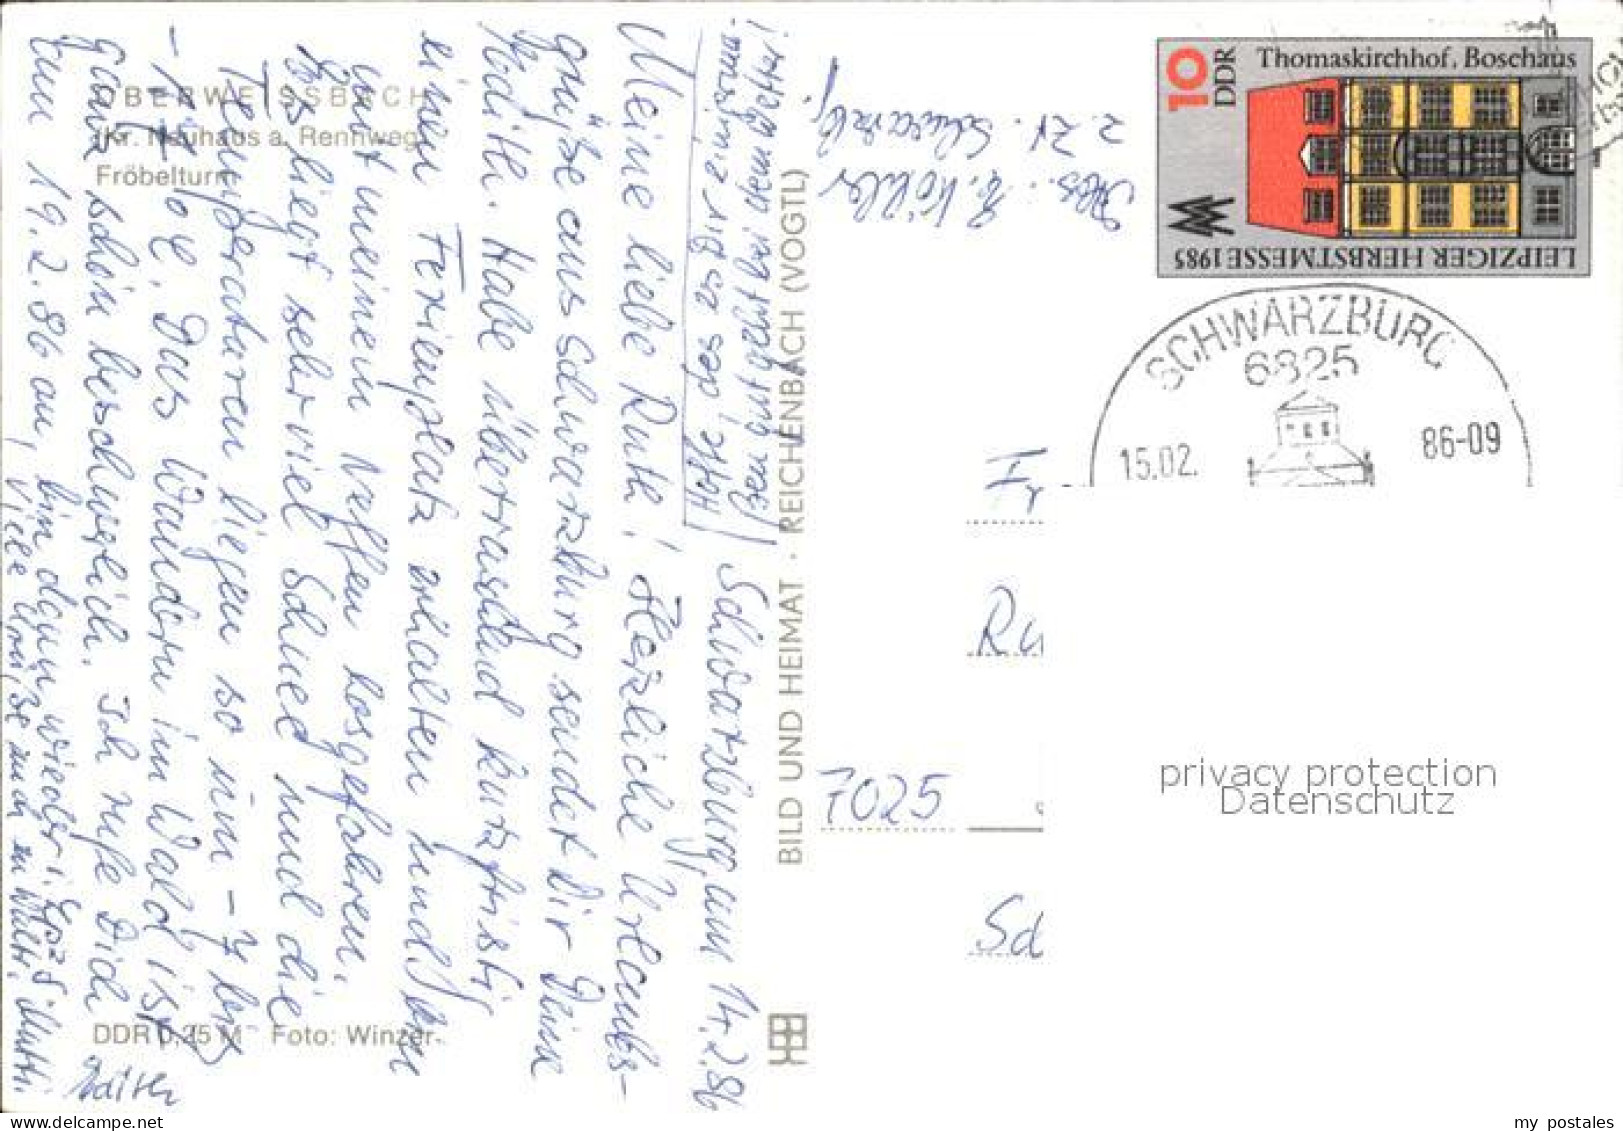 OBERWEISSBACH
(Kr. Neuhaus a. Rennweg)
Fröbelturm
Schwarzburg, am 14.2.86
Meine liebe Ruth! Herzliche Urlaubs-
grüße aus Schwarzburg sendet Dir Deine
Jodith. Habe überraschend kurzfristig
einen Ferienplatz erhalten und bin
mit meinem Neffen losgefahren.
Es liegt sehr viel Schnee und die
Temperaturen liegen so um -7 bis
-17°C. Das Wandern im Wald ist
ganz schön beschwerlich. Ich rufe Dich
am 19.2.86 an, bin dann wieder i.
Viele Grüße auch an Mutti.
Hoffe, daß es Dir
gut geht bei dem Wetter!
DDR 0,25 M Foto: Winzer
BILD UND HEIMAT · REICHENBACH (VOGTL)
Abs.: Köhler
z. Zt. Schwarzb.
10
DDR
Thomaskirchhof, Boschaus
LEIPZIGER HERBSTMESSE 1985
SCHWARZBURG
6825
15.02.
86-09
Fr
Ru
7025
Sch
privacy protection
Datenschutz
my postales